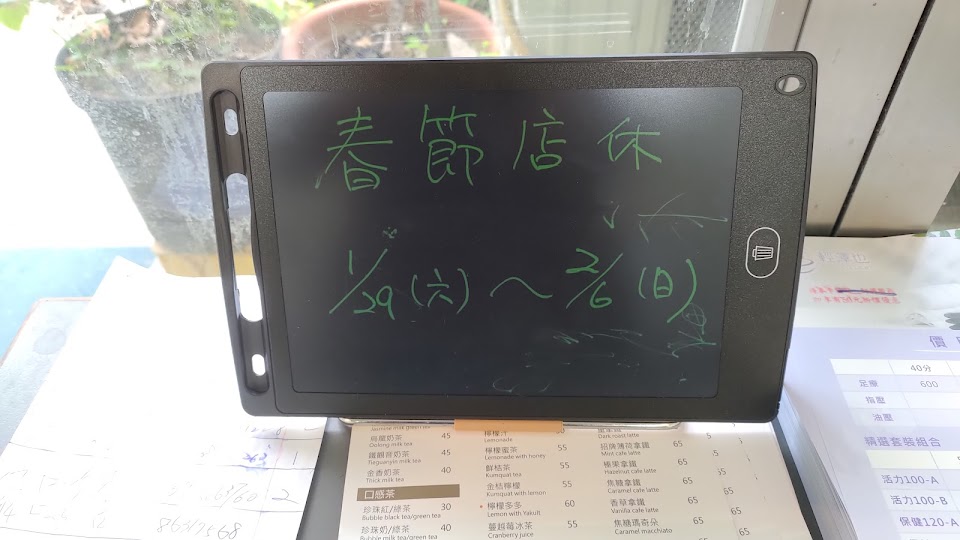 春節店休
1/29(六)~2/6(日)
價
40分
足療 600
指壓
油壓
精選套裝組合
活力100-A
活力100-B
保健120-A
Jasmine milk green tea
烏龍奶茶 45
Oolong milk tea
鐵觀音奶茶 45
Tieguanyin milk tea
金香奶茶 40
Thick milk tea
口感茶
珍珠紅/綠茶 30
Bubble black tea/green tea
珍珠奶/綠茶 40
Bubble milk tea/green tea
檸檬汁
Lemonade
檸檬蜜茶 55
Lemonade with honey
鮮桔茶 55
Kumquat tea
金桔檸檬 55
Kumquat with lemon
檸檬多多 60
Lemon with Yakult
蔓越莓冰茶 55
Cranberry juice
Dark roast latte
招牌薄荷拿鐵 65
Mint cafe latte
榛果拿鐵 65
Hazelnut cafe latte
焦糖拿鐵 65
Caramel cafe latte
香草拿鐵 65
Vanilla cafe latte
焦糖瑪奇朵 65
Caramel macchiato